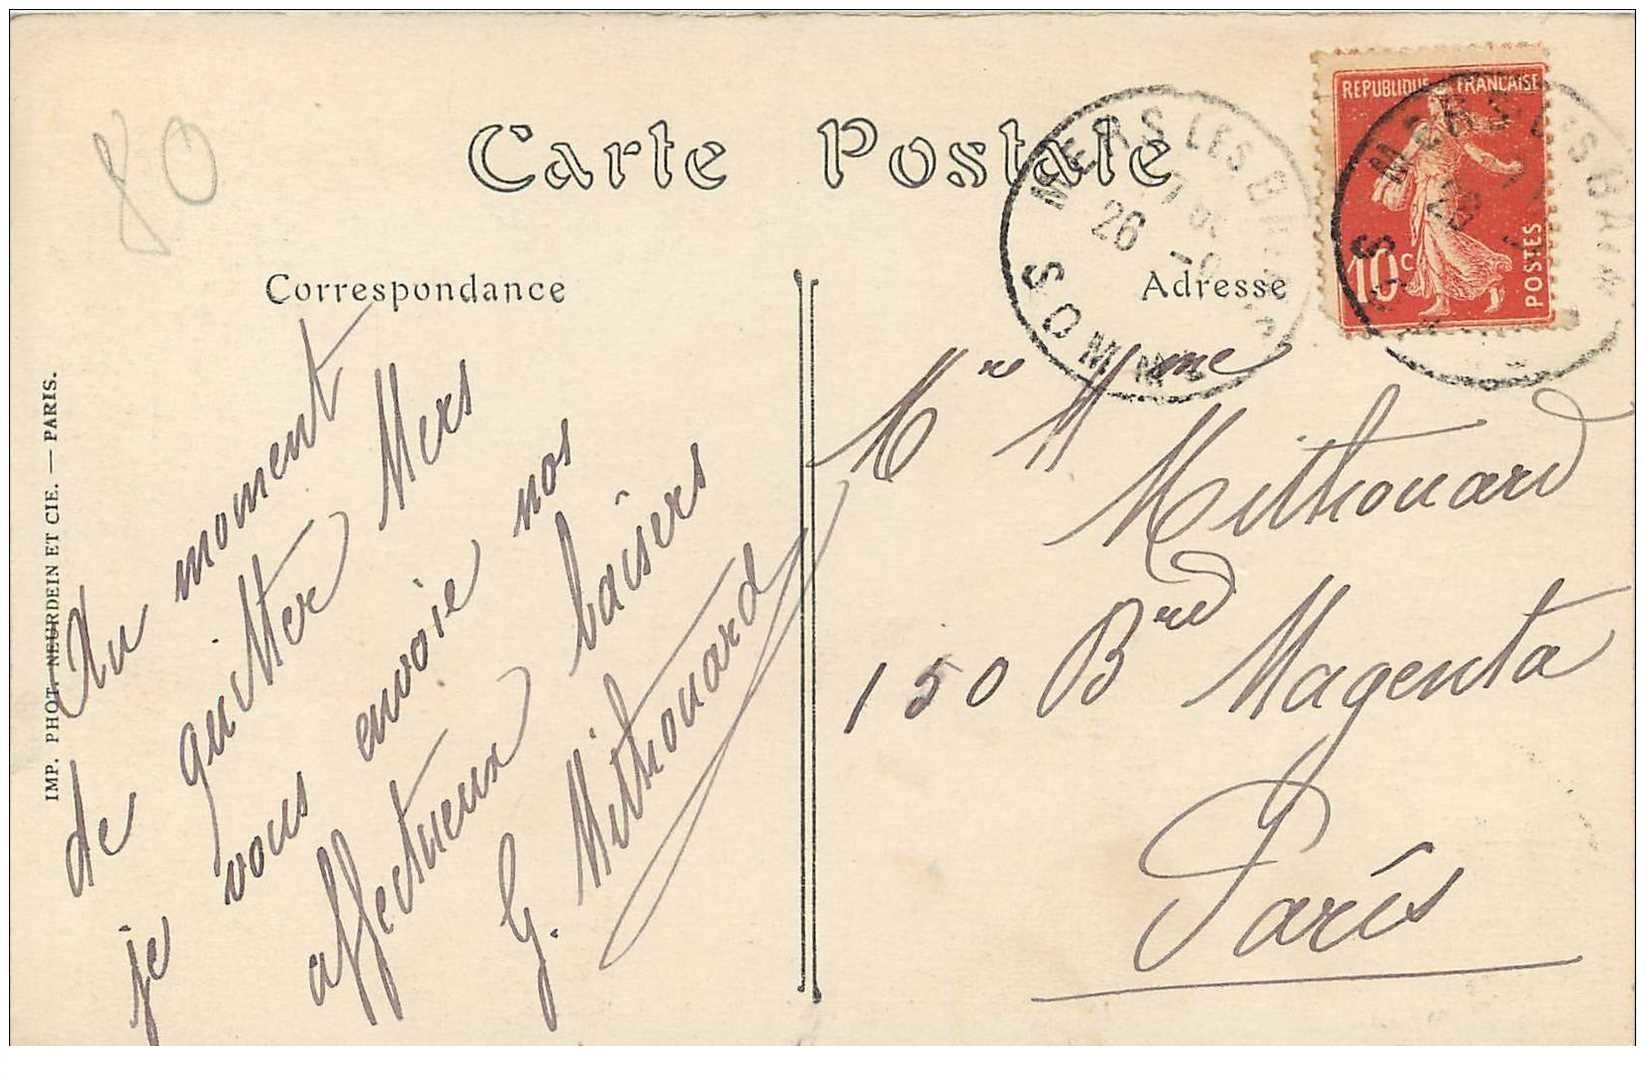 80
Carte Postale
Correspondance
Adresse
REPUBLIQUE FRANÇAISE
10c
POSTES
MERS LES BAINS
26
SOMME
MERS LES BAINS
26
IMP. PHOT. NEURDEIN ET CIE. — PARIS.
Au moment
de quitter Mers
je vous envoie nos
affectueux baisers
G. Mithouard
Mr Mme
Mithouard
150 Bd Magenta
Paris